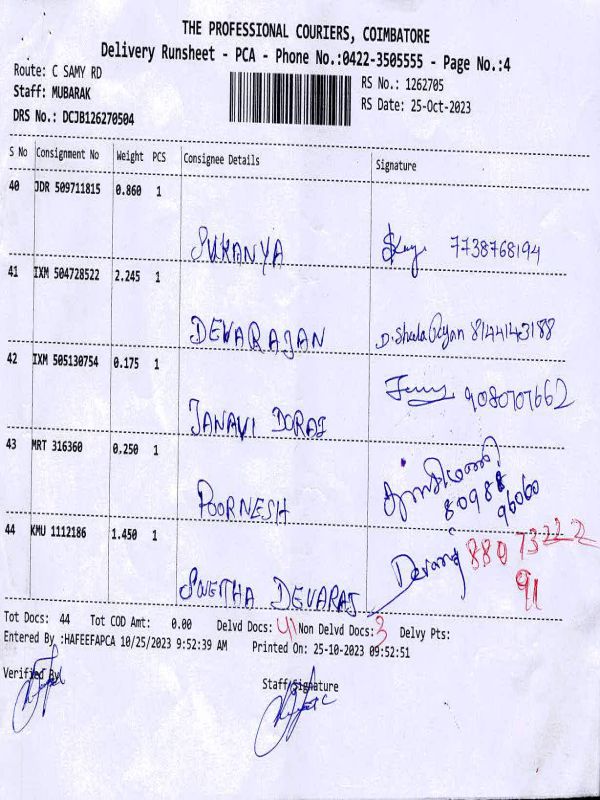 THE PROFESSIONAL COURIERS, COIMBATORE
Delivery Runsheet - PCA - Phone No.:0422-3505555 - Page No.:4
Route: C SAMY RD
RS No.: 1262705
Staff: MUBARAK
RS Date: 25-Oct-2023
DRS No.: DCJB126270504
S No Consignment No Weight PCS Consignee Details Signature
40 JDR 509711815 0.860 1
SUKANYA 7738768194
41 IXM 504728522 2.245 1
DEVARAJAN D. Sheela 8144143188
42 IXM 505130754 0.175 1
JANAVI DORAI 9080707662
43 MRT 316360 0.250 1
POORNESH 80988
96060
44 KMU 1112186 1.450 1
SWETHA DEVARAJ Devaraj 88073222
91
Tot Docs: 44 Tot COD Amt: 0.00 Delvd Docs: 41 Non Delvd Docs: 3 Delvy Pts:
Entered By :HAFEEFAPCA 10/25/2023 9:52:39 AM Printed On: 25-10-2023 09:52:51
Verified By
Staff Signature